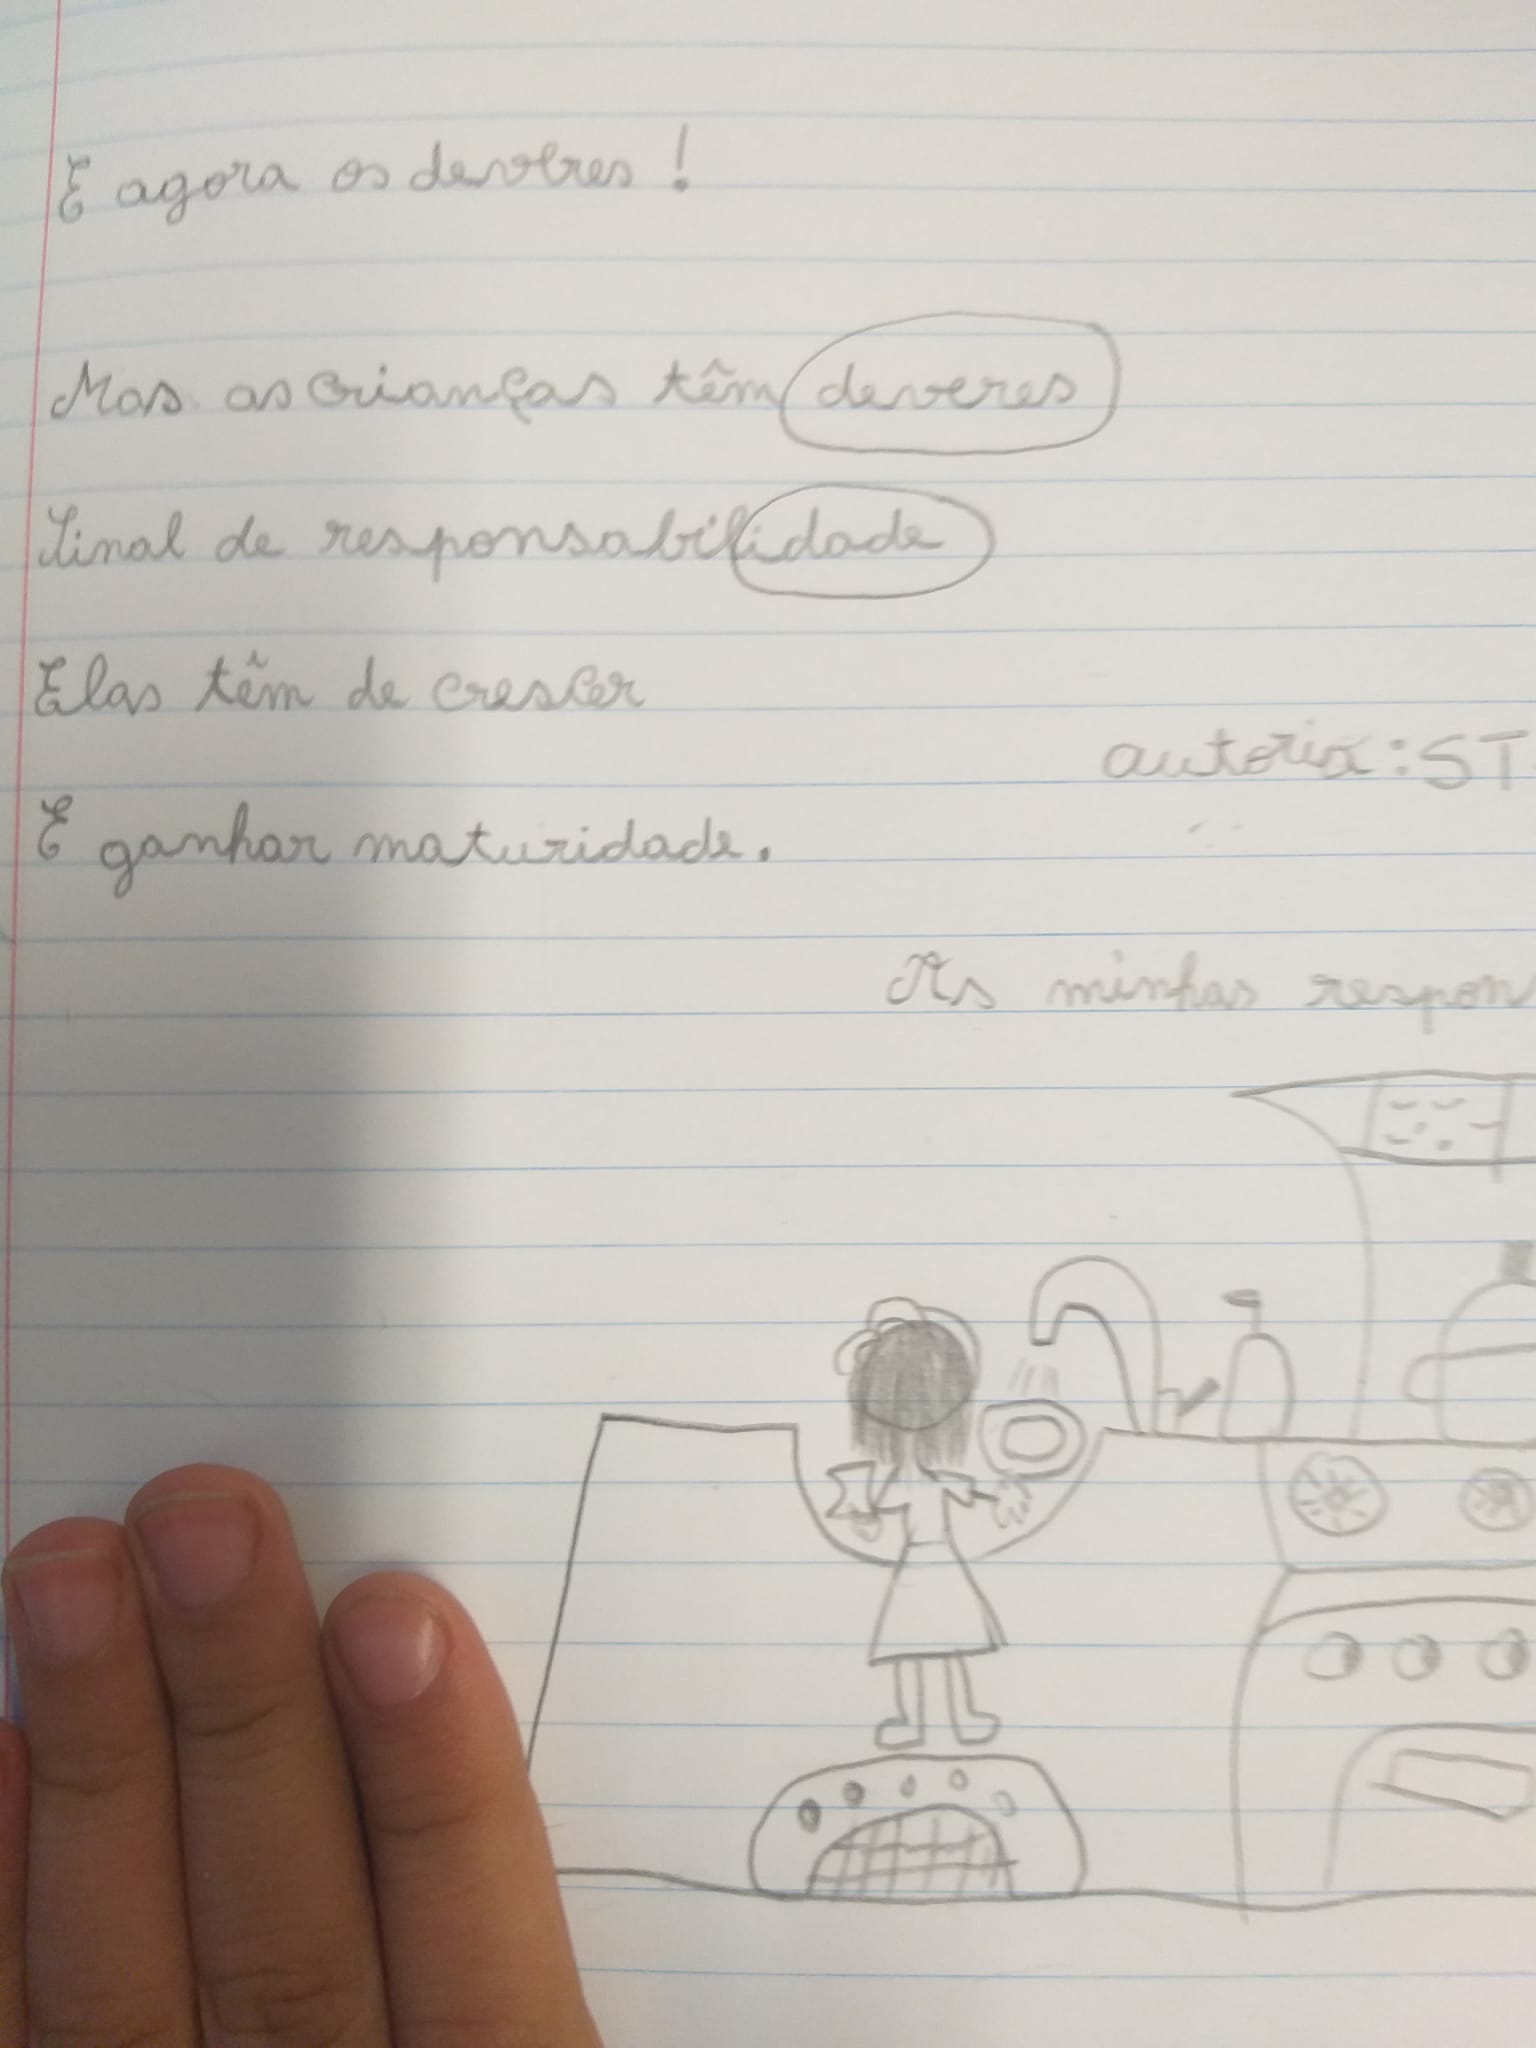 E agora os deveres !
Mas as crianças têm deveres
Sinal de responsabilidade
Elas têm de crescer
autoria: ST
E ganhar maturidade.
As minhas respon